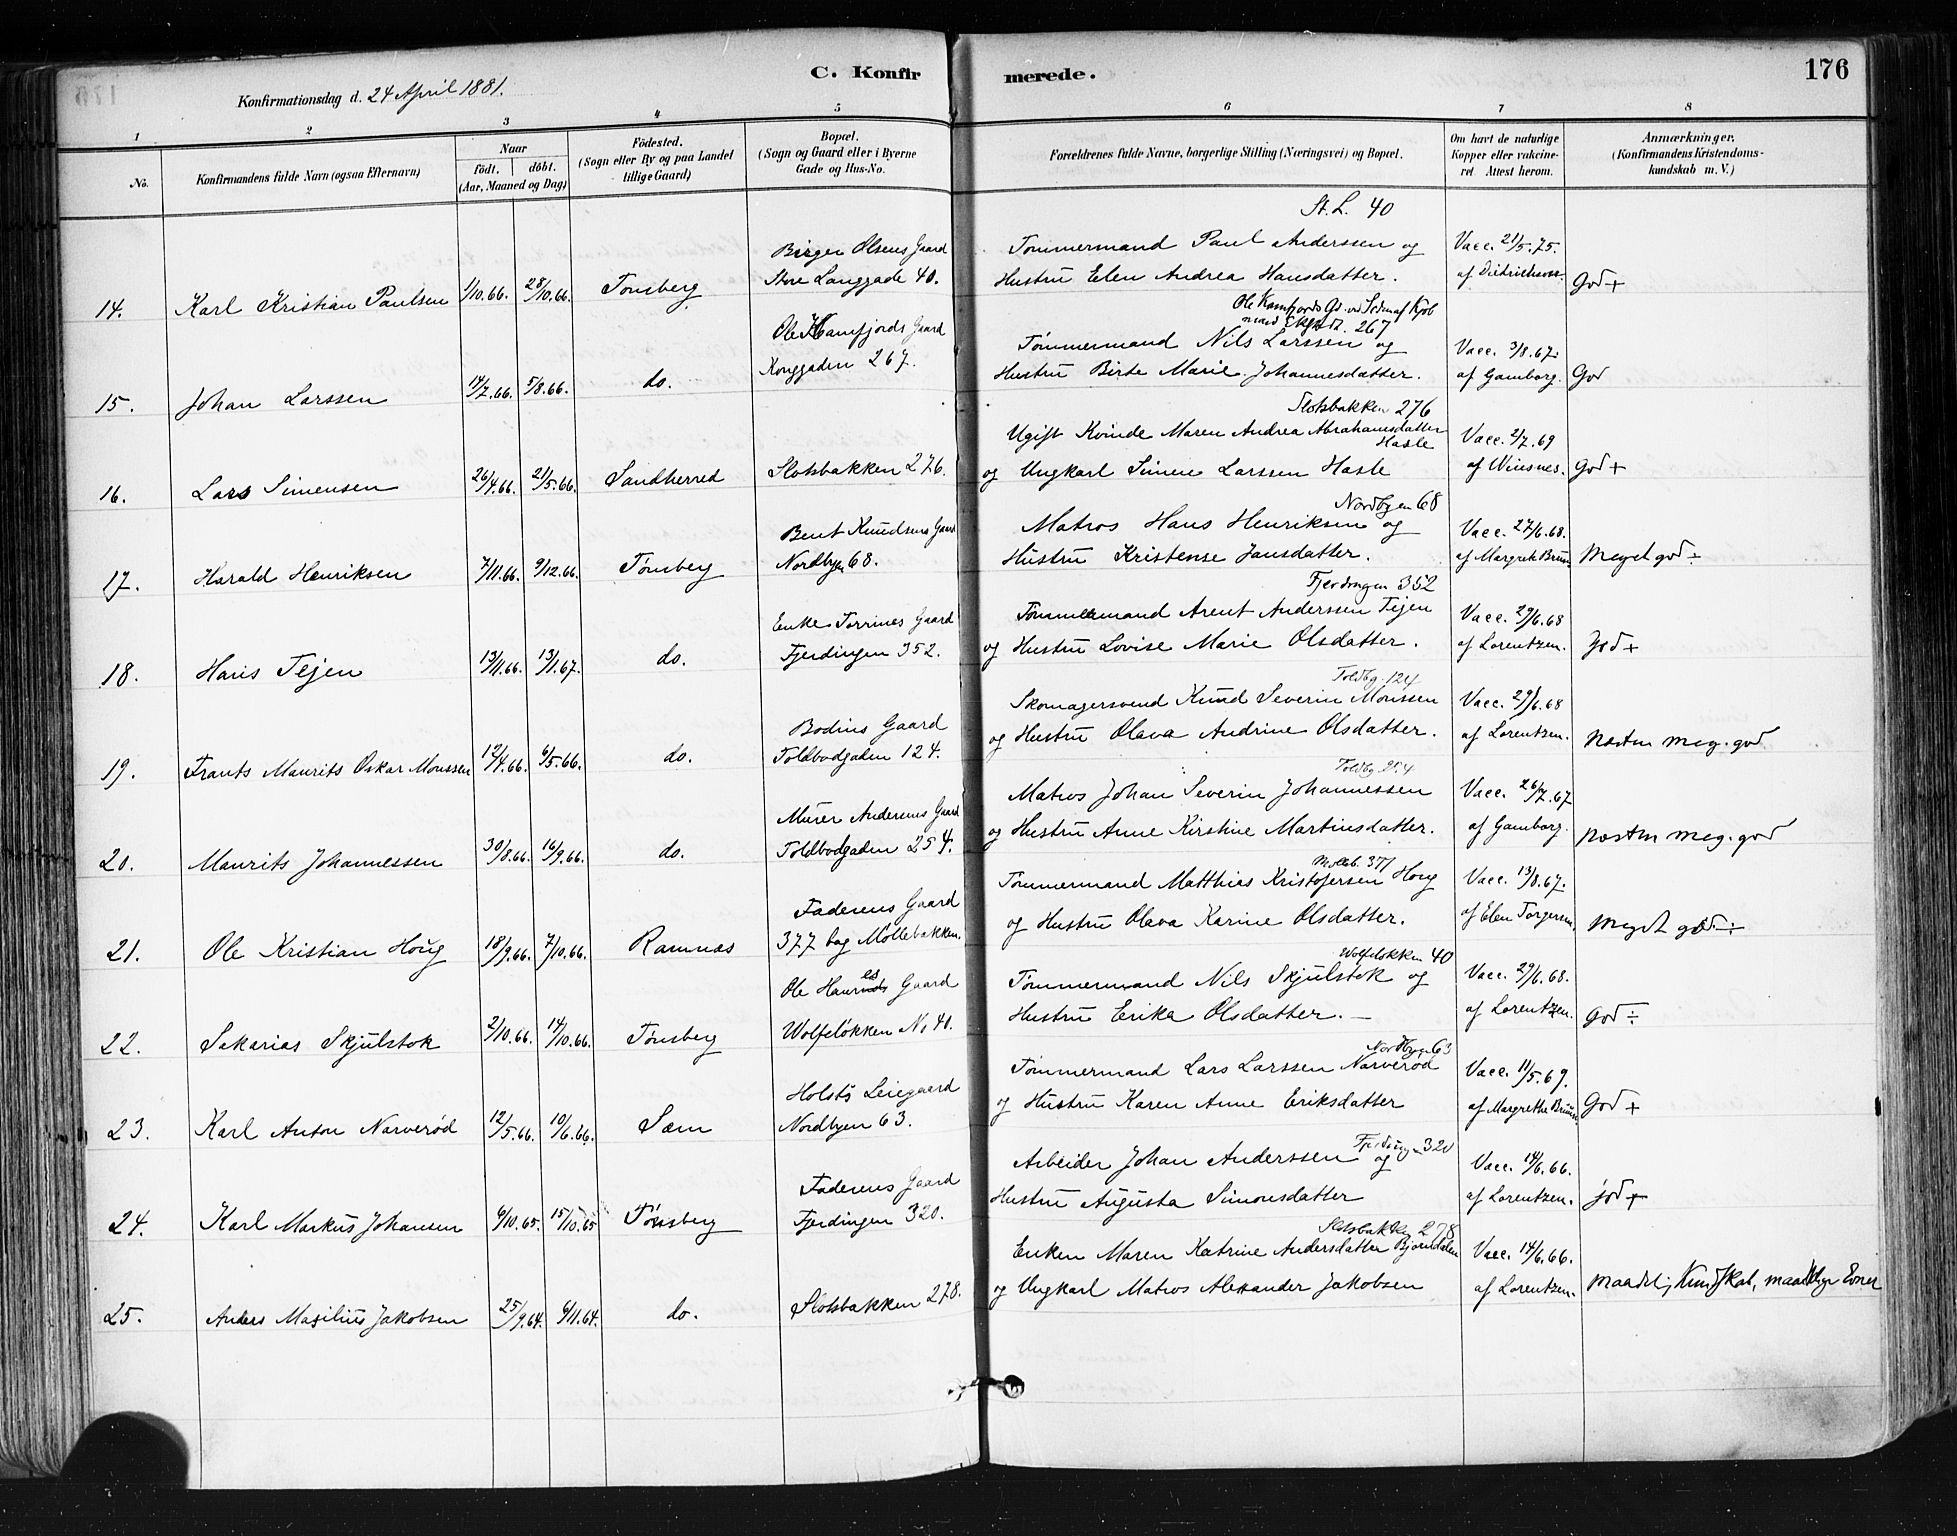 C. Konfirmerede.
176
Konfirmationsdag d. 24 April 1881.
1 2 3 4 5 6 7 8
No.
Konfirmandens fulde Navn (ogsaa Efternavn)
Naar
födt. döbt.
(Aar, Maaned og Dag)
Födested.
(Sogn eller By og paa Landet
tillige Gaard)
Bopæl.
(Sogn og Gaard eller i Byerne
Gade og Hus-No.
Forældrenes fulde Navne, borgerlige Stilling (Næringsvei) og Bopæl.
Om havt de naturlige
Kopper eller vakcine-
ret Attest herom.
Anmærkninger.
(Konfirmandens Kristendoms-
kundskab m. V.)
14. Karl Kristian Paulsen 1/10.66. 28/10.66. Tönsberg
Birger Olsens Gaard
Store Langgade 40.
St. L. 40
Tömmermand Paul Anderssen og
Hustru Elen Andrea Hansdatter.
Vacc. 21/5.75.
af Dietrichson.
God +
15. Johan Larssen 14/7.66. 5/8.66. do.
Ole Kamfjords Gaard
Konggaden 267.
Ole Kamfjords Gd
267
Tömmermand Nils Larssen og
Hustru Birte Marie Johannesdatter.
Vacc. 3/8.67.
af Gamborg.
God
16. Lars Simensen 26/4.66. 21/5.66. Sandherred
Slotsbakken 276.
Slotsbakken 276
Ugift Kvinde Maren Andrea Abrahamsdatter
Hasle
og Ungkarl Simen Larssen Hasle
Vacc. 2/7.69
af Winsnes.
God +
17. Harald Henriksen 7/11.66. 9/12.66. Tönsberg
Bent Knudsens Gaard
Nordbyen 68.
Nordbyen 68
Matros Hans Henriksen og
Hustru Kristense Jansdatter.
Vacc. 27/6.68.
af Margrethe Bruun.
Meget god ÷
18. Hans Tejen 13/11.66. 13/1.67. do.
Enke Torrines Gaard
Fjerdingen 352.
Fjerdingen 352
Tömmermand Arent Anderssen Tejen
og Hustru Lovise Marie Olsdatter.
Vacc. 29/6.68
af Lorentzen.
God +
19. Frants Maurits Oskar Monssen 12/4.66. 6/5.66. do.
Bodins Gaard
Toldbodgaden 124.
Toldbg. 124
Skomagersvend Knud Severin Monssen
og Hustru Olava Andrine Olsdatter.
Vacc. 29/6.68
af Lorentzen.
Næsten meg. god
20. Maurits Johannessen 30/8.66. 16/9.66. do.
Murer Andersens Gaard
Toldbodgaden 254.
Toldbg 254
Matros Johan Severin Johannessen
og Hustru Anne Kirstine Martinsdatter.
Vacc. 26/7.67
af Gamborg.
Næsten meg. god
21. Ole Kristian Houg 18/9.66. 7/10.66. Ramnæs
Faderens Gaard
377 bag Möllebakken.
Mölleb. 377
Tömmermand Matthias Kristofersen Houg
og Hustru Olava Karine Olsdatter.
Vacc. 13/8.67.
af Elen Torgersen.
Meget god ÷
22. Sakarias Skjulstok 2/10.66. 14/10.66. Tönsberg
Ole Gaard
Wolfelökken No 40.
Wolfelökken 40
Tömmermand Nils Skjulstok og
Hustru Erika Olsdatter. —
Vacc. 29/6.68.
af Lorentzen.
God ÷
23. Karl Anton Narveröd 12/5.66. 10/6.66. Sæm
Holsts Leiegaard
Nordbyen 63.
Nordbyen 63
Tömmermand Lars Larssen Narveröd
og Hustru Karen Anne Eriksdatter
Vacc. 11/5.69.
af Margrethe Bruun
God +
24. Karl Markus Johansen 6/10.65. 15/10.65 Tönsberg
Faderens Gaard
Fjerdingen 320.
Fjerdingen 320
Arbeider Johan Anderssen og
Hustru Augusta Simonsdatter
Vacc. 14/6.66.
af Lorentzen.
god +
25. Anders Masilius Jakobsen 25/9.64. 6/11.64. do.
Slotsbakken 278.
Slotsbakken 278
Enken Maren Katrine Andersdatter Bjöndalen
og Ungkarl Matros Alexander Jakobsen
Vacc. 14/6.66.
af Lorentzen.
maadelig Kundskab, maadelige Evner